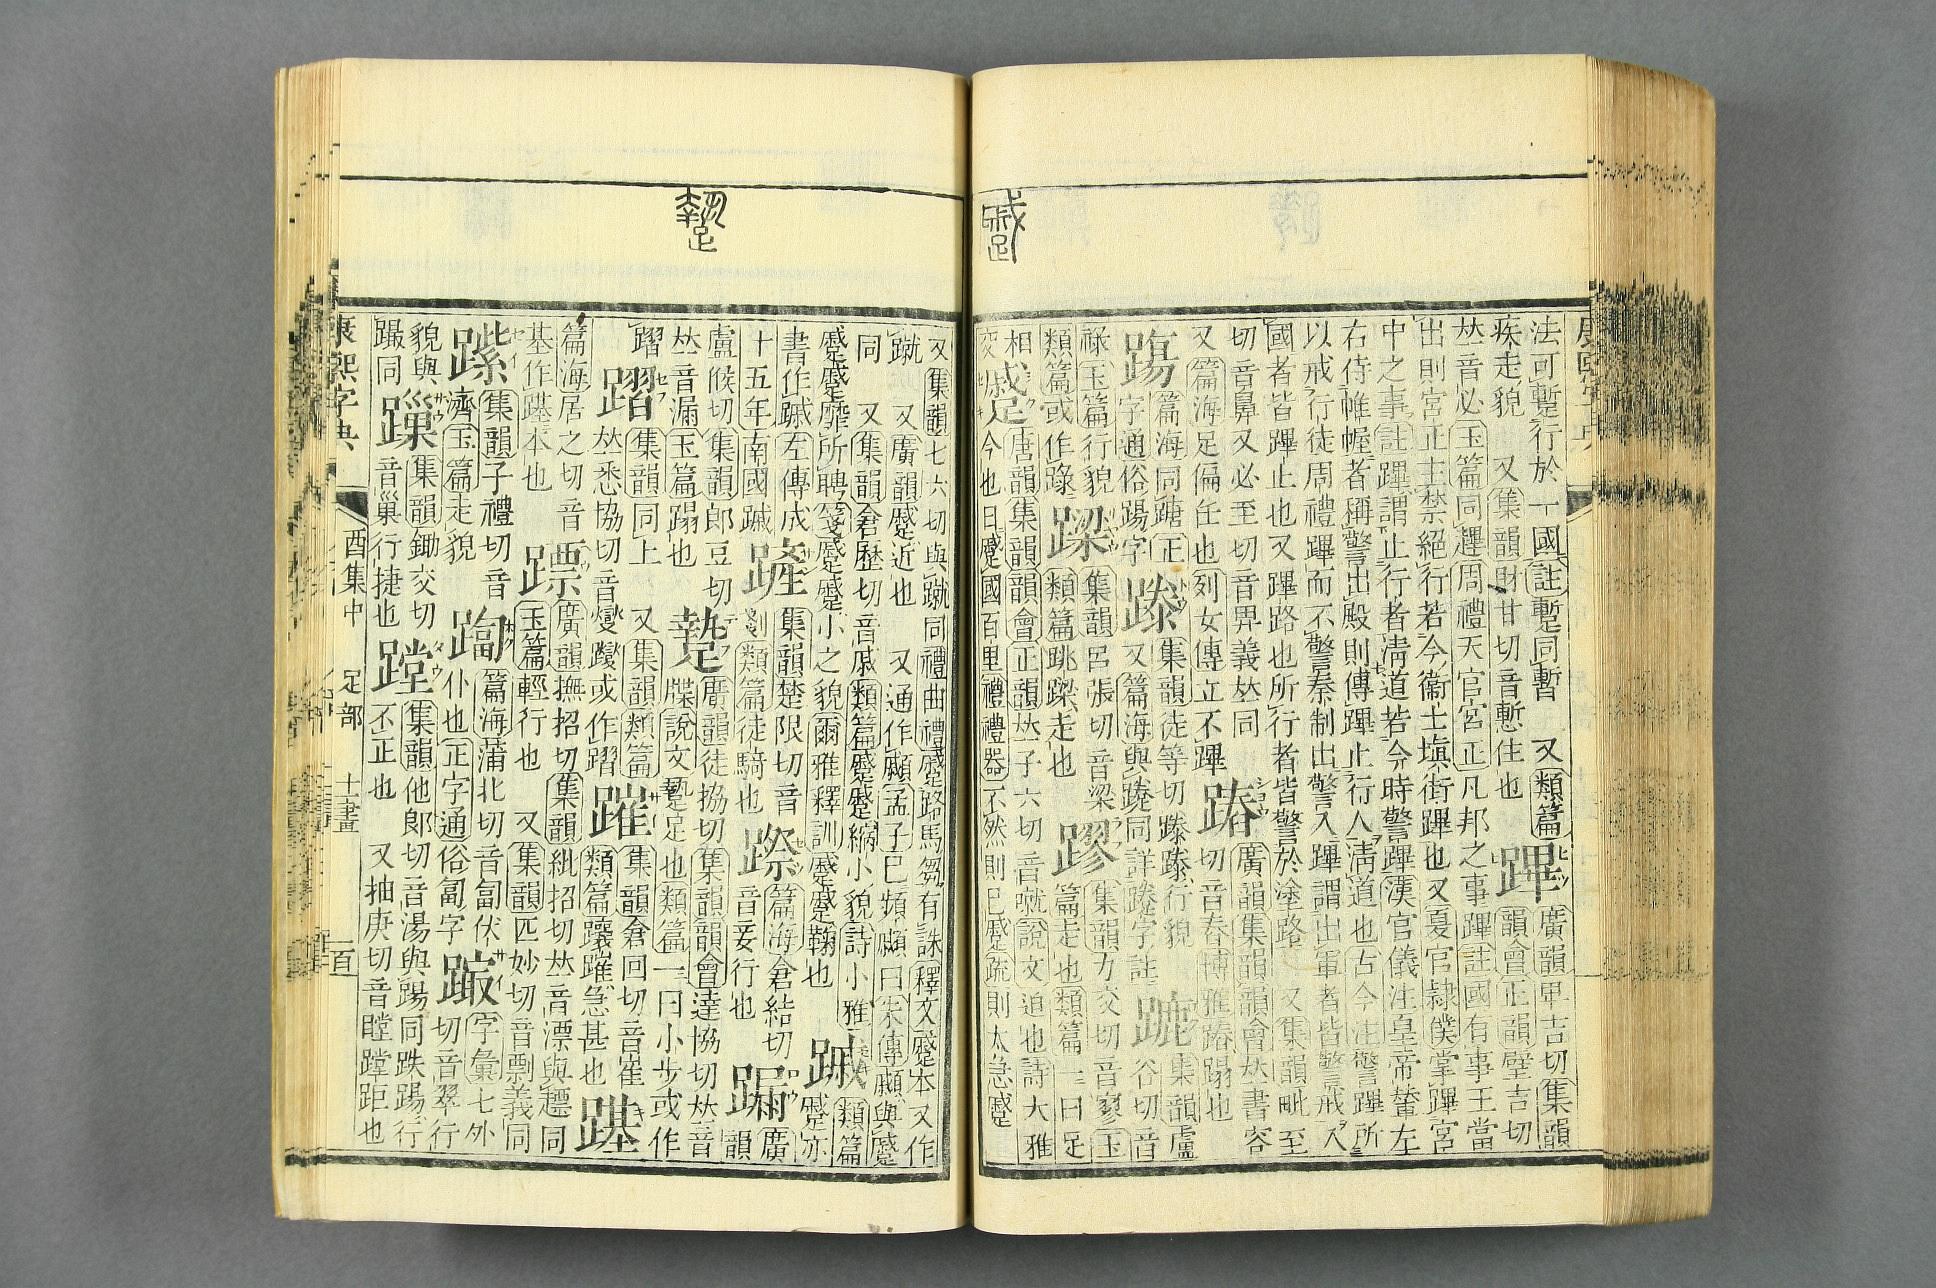 法可蹔行於一國註蹔同暫　又類篇
疾走貌　又集韻財甘切音慙住也
蹕
廣韻𤰞吉切集韻
韻會正韻壁吉切
𠀤音必玉篇同趩周禮天官宮正凡邦之事蹕註國有事王當
出則宮正主禁絕行若今衞士塡街蹕也又夏官隸僕掌蹕宮
中之事註蹕謂止行者淸道若今時警蹕漢官儀注皇帝輦左
右侍帷幄者稱警出殿則傳蹕止行人淸道也古今注警蹕所
以戒行徒周禮蹕而不警秦制出警入蹕謂出軍者皆警戒入
國者皆蹕止也又蹕路也所行者皆警於塗路　又集韻毗至
切音鼻又必至切音畀義𠀤同
又篇海足偏任也列女傳立不蹕
蹖
廣韻集韻韻會𠀤書容
切音舂博雅蹖蹋也
篇海同
正字通俗踼字
集韻徒等切
行貌
又篇海與
同詳
字註
蹗
集韻盧
谷切音
祿玉篇行貌
類篇或作踛
集韻呂張切音梁
類篇跳
走也
蹘
集韻力交切音寥玉
篇走也類篇一曰足
相
蹙
唐韻集韻韻會正韻𠀤子六切音噈說文迫也詩大雅
今也日蹙國百里禮禮器不然則已蹙疏則太急蹙
又集韻七六切與蹴同禮曲禮蹙路馬芻有誅釋文蹙本又作
蹴　又廣韻蹙近也　又通作顣孟子已頻顣曰朱傳顣與蹙
同　又集韻倉歷切音戚類篇蹙蹙縮小貌詩小雅
蹙蹙靡所聘箋蹙蹙小之貌爾雅釋訓蹙蹙鞠也
䠞
類篇
蹙亦
書作䠞左傳成
十五年南國䠞
集韻楚限切音
剗類篇徒騎也
篇海倉結切
音妾行也
廣
韻
盧候切集韻郎豆切
𠀤音漏玉篇蹋也
廣韻徒協切集韻韻會達協切𠀤音
牒說文
足也類篇一曰小步或作
集韻同上　又集韻類篇
𠀤悉協切音燮躞或作
集韻倉回切音崔
類篇
急甚也
篇海居之切音
基作
本也
廣韻撫招切集韻紕招切𠀤音漂與
同
玉篇輕行也　又集韻匹妙切音剽義同
集韻子禮切音
濟玉篇走貌
篇海蒲北切音匐伏
仆也正字通俗匐字
字彙七外
切音翠行
貌與
躡同
集韻鋤交切
音巢行捷也
集韻他郎切音湯與踼同跌踼行
不正也　又抽庚切音瞠
距也
康熙字典
酉集中　足部　十一畫
百